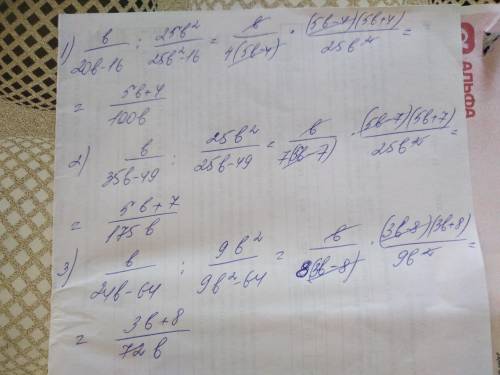 1) b/(20b-16) : 25b²/(25b²-16) = b/(4(5b-4)) · (5b-4)(5b+4)/(25b²) =
= (5b+4)/(100b)
2) b/(35b-49) : 25b²/(25b-49) = b/(7(5b-7)) · (5b-7)(5b+7)/(25b²) =
= (5b+7)/(175b)
3) b/(24b-64) : 9b²/(9b²-64) = b/(8(3b-8)) · (3b-8)(3b+8)/(9b²) =
= (3b+8)/(72b)
АЛЬФА